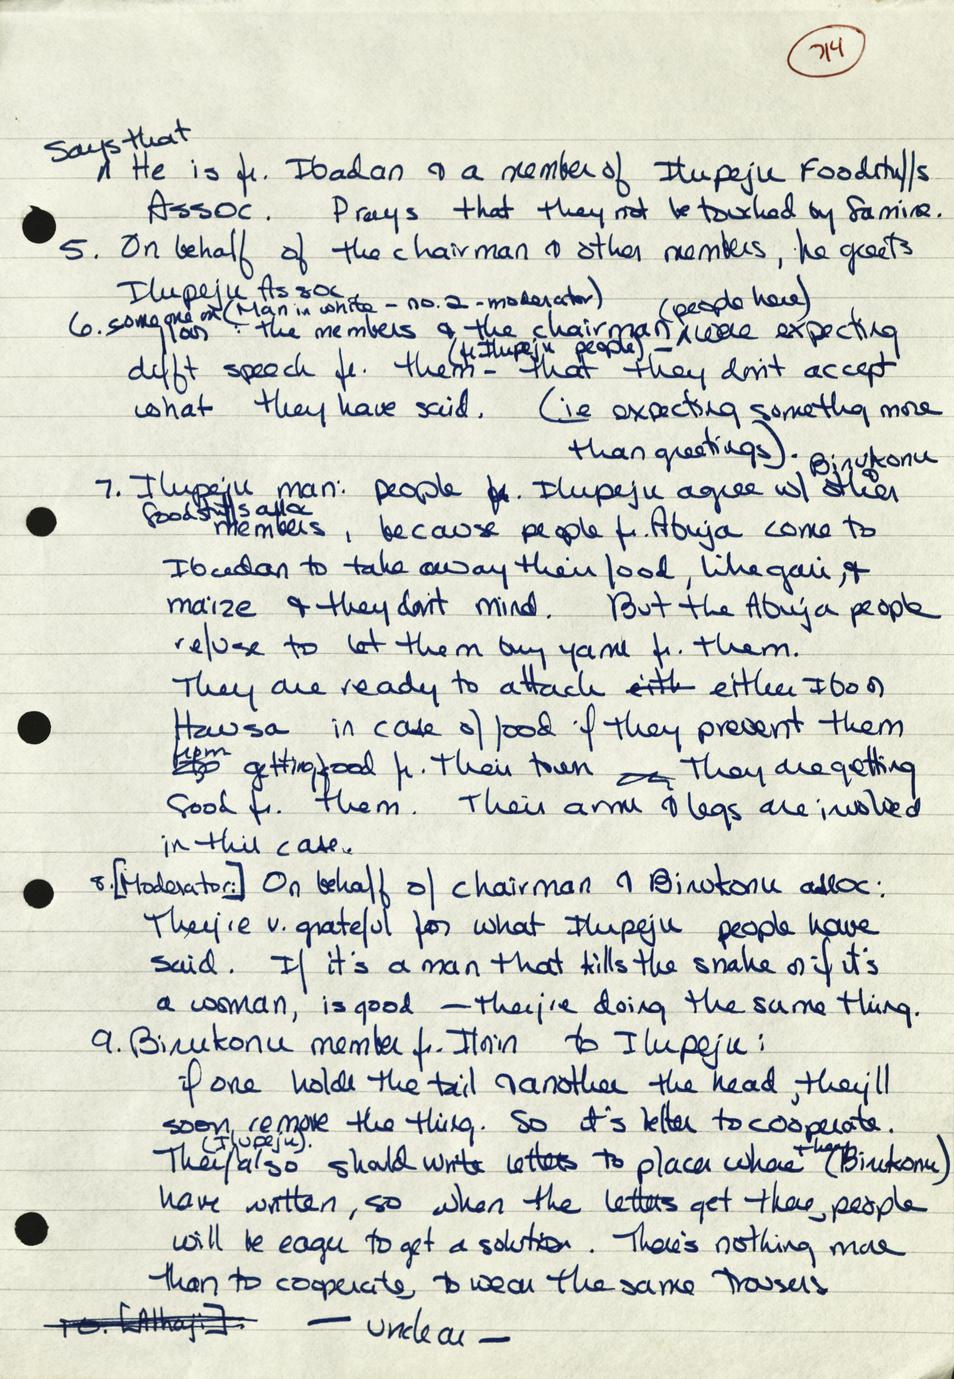 714
Says that
He is fr. Ibadan & a member of Ilupeju Foodstuffs
Assoc. Prays that they not be touched by famine.
5. On behalf of the chairman & other members, he greets
Ilupeju Assoc.
(Man in white - no. 2 - moderator) (people here)
6. someone : the members & the chairman were expecting
(fr. Ilupeju people)
diff't speech fr. them - that they don't accept
what they have said. (ie expecting somethg more
than greetings).
Birukonu
7. Ilupeju man: people fr. Ilupeju agree w/ other
foodstuffs assoc
members, because people fr. Abuja come to
Ibadan to take away their food, like gari, &
maize & they don't mind. But the Abuja people
refuse to let them buy yams fr. them.
They are ready to attack eith either Ibo or
Hausa in case of food if they prevent them
from getting food fr. their town They are getting
food fr. them. Their arms & legs are involved
in this case.
8. [Moderator:] On behalf of chairman & Birukonu assoc:
They're v. grateful for what Ilupeju people have
said. If it's a man that kills the snake or if it's
a woman, is good - they're doing the same thing.
9. Birukonu member fr. Ilorin to Ilupeju:
if one holds the tail & another the head, they'll
soon remove the thing. So it's better to cooperate.
(Ilupeju).
They also should write letters to places where they (Birukonu)
have written, so when the letters get there, people
will be eager to get a solution. There's nothing more
than to cooperate, to wear the same trousers
10. [Alhaji]. - unclear -